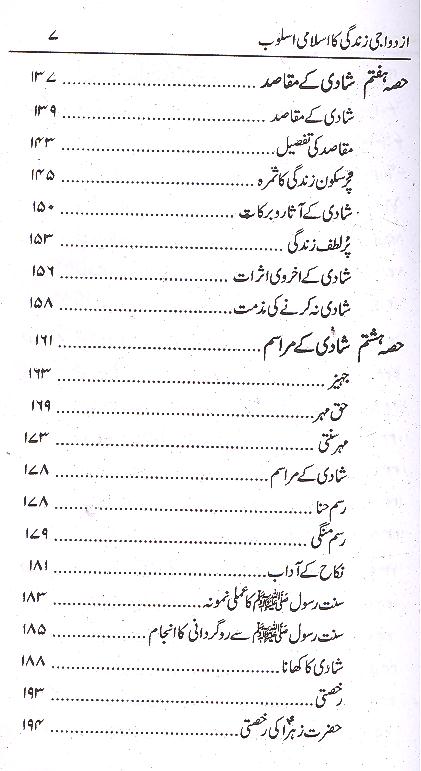 ازدواجی زندگی کا اسلامی اسلوب ۷
حصہ ہفتم شادی کے مقاصد ........ ۱۳۷
شادی کے مقاصد ........ ۱۳۹
مقاصد کی تفصیل ........ ۱۴۳
پُر سکون زندگی کا ثمرہ ........ ۱۴۵
شادی کے آثار و برکات ........ ۱۵۰
پُر لطف زندگی ........ ۱۵۳
شادی کے اخروی اثرات ........ ۱۵۶
شادی نہ کرنے کی مذمت ........ ۱۵۸
حصہ ہشتم شادی کے مراسم ........ ۱۶۱
جہیز ........ ۱۶۳
حق مہر ........ ۱۶۹
مہر سنتی ........ ۱۷۳
شادی کے مراسم ........ ۱۷۸
رسم حنا ........ ۱۷۸
رسم منگی ........ ۱۷۹
نکاح کے آداب ........ ۱۸۱
سنت رسول ﷺ کا عملی نمونہ ........ ۱۸۳
سنت رسول ﷺ سے روگردانی کا انجام ........ ۱۸۵
شادی کا کھانا ........ ۱۸۸
رخصتی ........ ۱۹۳
حضرت زہراؑ کی رخصتی ........ ۱۹۴